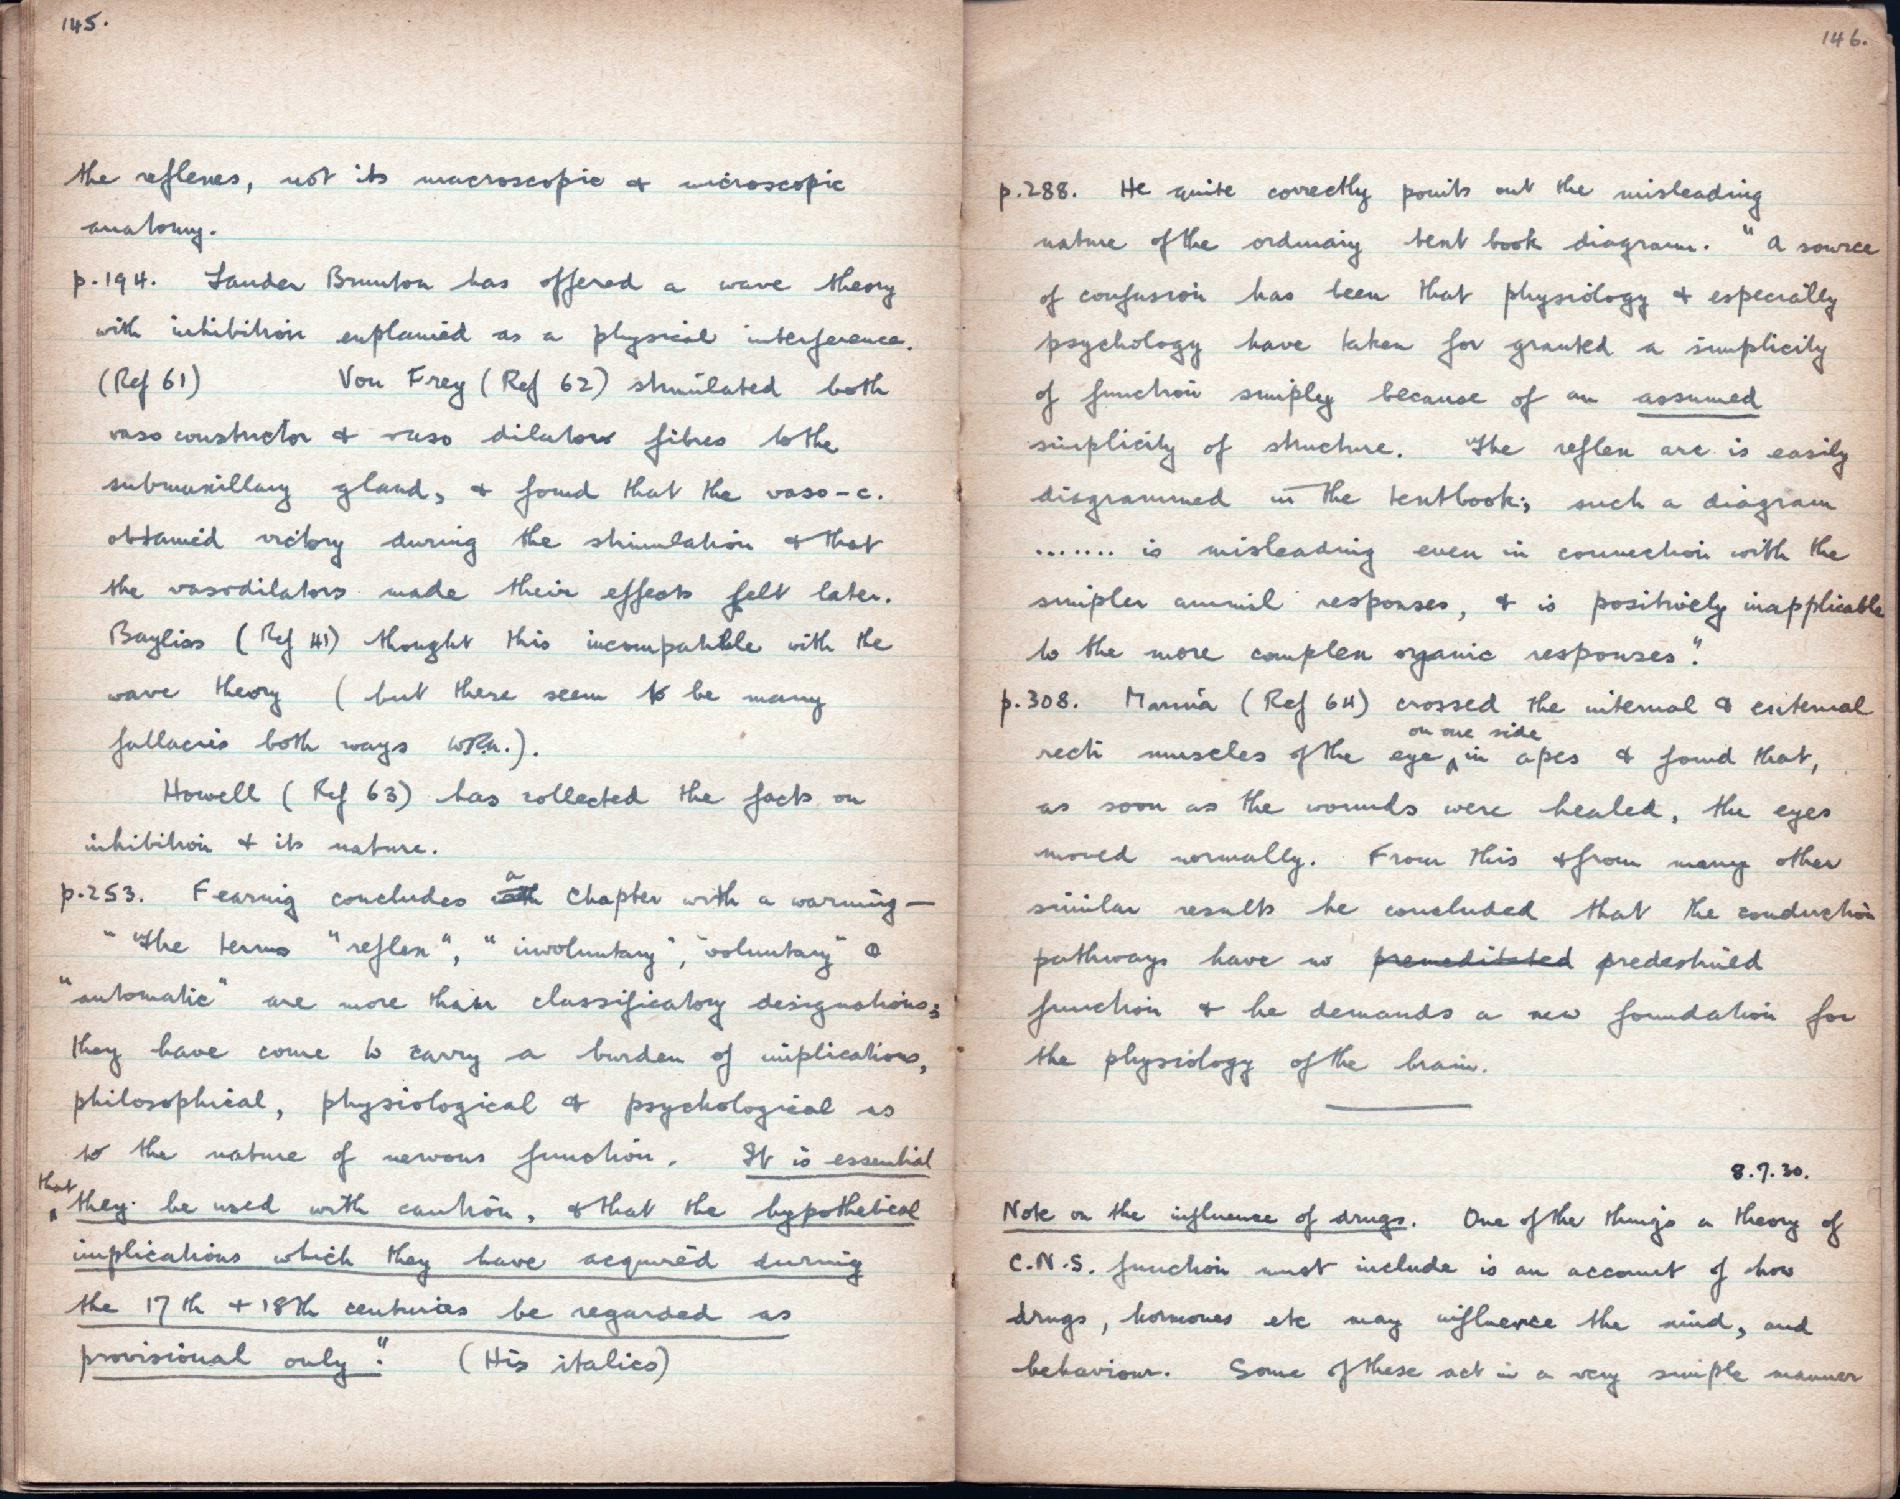 145.
the reflexes, not its macroscopic & microscopic
anatomy.
p.194. Lauder Brunton has offered a wave theory
with inhibition explained as a physical interference.
(Ref 61) Von Frey (Ref 62) stimulated both
vaso constrictor & vaso dilator fibres to the
submaxillary gland, & found that the vaso-c.
obtained victory during the stimulation & that
the vasodilators made their effects felt later.
Bayliss (Ref 41) thought this incompatible with the
wave theory (but there seem to be many
fallacies both ways WRA.).
Howell (Ref 63) has collected the facts on
inhibition & its nature.
p.253. Fearing concludes a chapter with a warning —
" The terms "reflex", "involuntary", "voluntary" &
"automatic" are more than classificatory designations;
they have come to carry a burden of implications,
philosophical, physiological & psychological as
to the nature of nervous function. It is essential
that they be used with caution, & that the hypothetical
implications which they have acquired during
the 17th + 18th centuries be regarded as
provisional only." (His italics)
146.
p.288. He quite correctly points out the misleading
nature of the ordinary text book diagram. "A source
of confusion has been that physiology & especially
psychology have taken for granted a simplicity
of function simply because of an assumed
simplicity of structure. The reflex arc is easily
diagrammed in the textbook; such a diagram
....... is misleading even in connection with the
simpler animal responses, & is positively inapplicable
to the more complex organic responses".
p.308. Marina (Ref 64) crossed the internal & external
recti muscles of the eye on one side in apes & found that,
as soon as the wounds were healed, the eyes
moved normally. From this & from many other
similar results he concluded that the conduction
pathways have no premeditated predestined
function & he demands a new foundation for
the physiology of the brain.
8.7.30.
Note on the influence of drugs. One of the things a theory of
C.N.S. function must include is an account of how
drugs, hormones etc may influence the mind, and
behaviour. Some of these act in a very simple manner